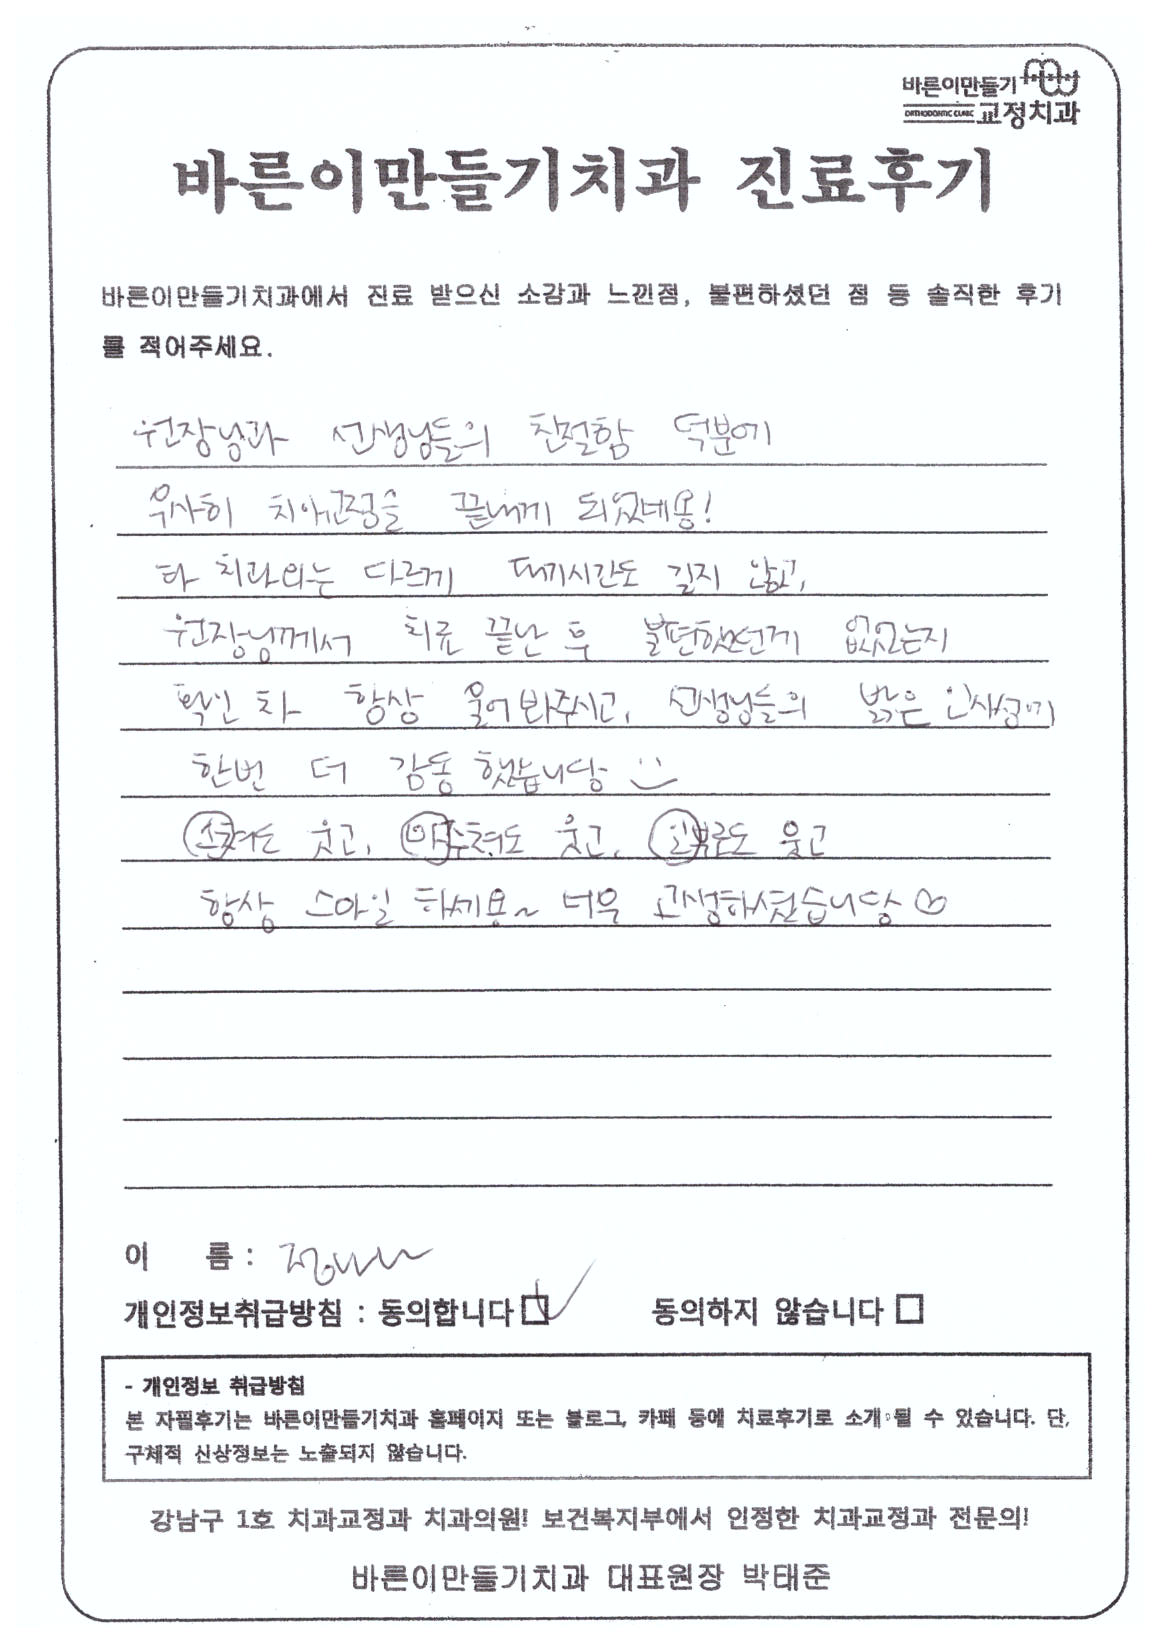 바른이만들기
ORTHODONTIC CLINIC 교정치과
바른이만들기치과 진료후기
바른이만들기치과에서 진료 받으신 소감과 느낀점, 불편하셨던 점 등 솔직한 후기
를 적어주세요.
원장님과 선생님들의 친절함 덕분에
무사히 치아교정을 끝내게 되었네용!
타 치과와는 다르게 대기시간도 길지 않고,
원장님께서 치료 끝난 후 불편했던게 없었는지
확인 차 항상 물어봐주시고, 선생님들의 밝은 인사성에
한번 더 감동 했습니당
스쳐도 웃고, 마주쳐도 웃고, 일부러도 웃고
항상 스마일 하세용~ 너무 고생하셨습니당♡
이 름 :
개인정보취급방침 : 동의합니다 동의하지 않습니다
- 개인정보 취급방침
본 자필후기는 바른이만들기치과 홈페이지 또는 블로그, 카페 등에 치료후기로 소개 될 수 있습니다. 단,
구체적 신상정보는 노출되지 않습니다.
강남구 1호 치과교정과 치과의원! 보건복지부에서 인정한 치과교정과 전문의!
바른이만들기치과 대표원장 박태준